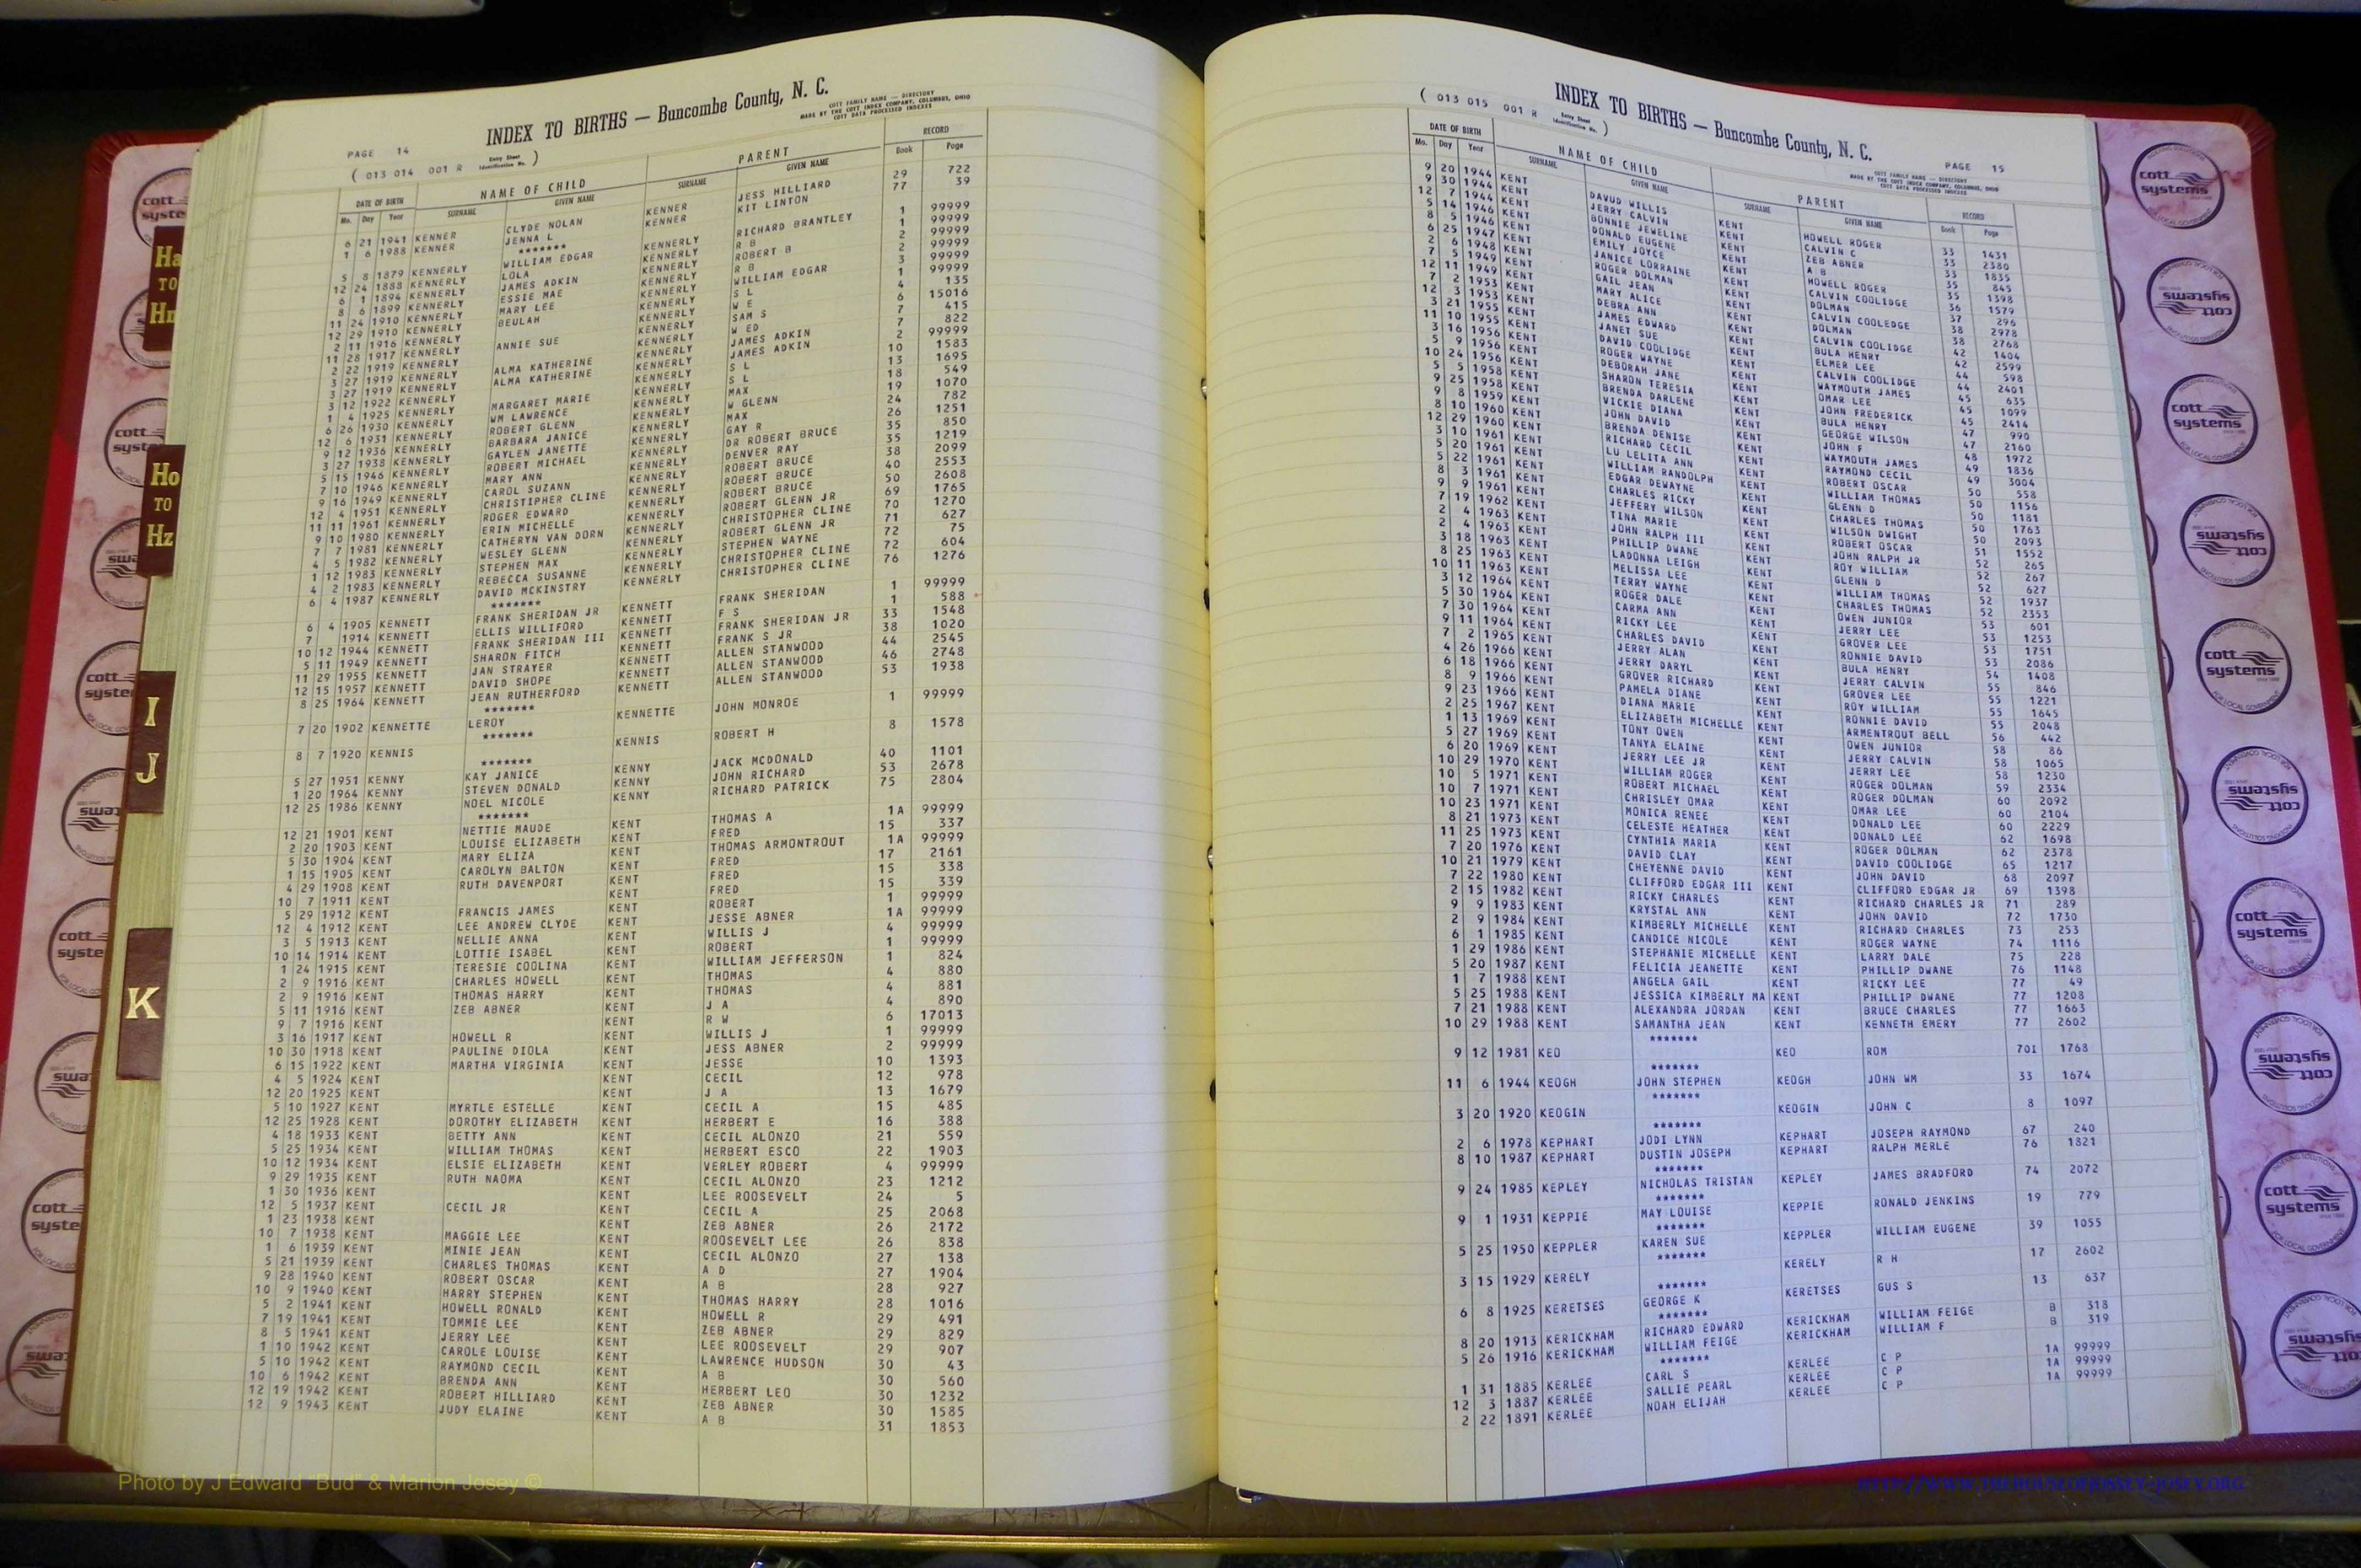 INDEX TO BIRTHS — Buncombe County, N. C.
COTT FAMILY NAME — DIRECTORY
MADE BY THE COTT INDEX COMPANY, COLUMBUS, OHIO
COTT DATA PROCESSED INDEXES
PAGE 14
( 013 014 001 R Entry Sheet Identification No. )
DATE OF BIRTH NAME OF CHILD PARENT RECORD
Mo. Day Year SURNAME GIVEN NAME SURNAME GIVEN NAME Book Page
6 21 1941 KENNER CLYDE NOLAN KENNER JESS HILLIARD 29 722
1 6 1988 KENNER JENNA L KENNER KIT LINTON 77 39
*******
5 8 1879 KENNERLY WILLIAM EDGAR KENNERLY RICHARD BRANTLEY 1 99999
12 24 1888 KENNERLY LOLA KENNERLY R B 1 99999
6 1 1894 KENNERLY JAMES ADKIN KENNERLY ROBERT B 2 99999
8 6 1899 KENNERLY ESSIE MAE KENNERLY R B 2 99999
11 24 1910 KENNERLY MARY LEE KENNERLY WILLIAM EDGAR 3 99999
12 29 1910 KENNERLY BEULAH KENNERLY S L 1 99999
2 11 1916 KENNERLY KENNERLY W E 4 135
11 28 1917 KENNERLY ANNIE SUE KENNERLY SAM S 6 15016
2 22 1919 KENNERLY KENNERLY W ED 7 415
3 27 1919 KENNERLY ALMA KATHERINE KENNERLY JAMES ADKIN 7 822
3 27 1919 KENNERLY ALMA KATHERINE KENNERLY JAMES ADKIN 2 99999
3 12 1922 KENNERLY KENNERLY S L 10 1583
1 4 1925 KENNERLY MARGARET MARIE KENNERLY S L 13 1695
6 26 1930 KENNERLY WM LAWRENCE KENNERLY MAX 18 549
12 6 1931 KENNERLY ROBERT GLENN KENNERLY W GLENN 19 1070
9 12 1936 KENNERLY BARBARA JANICE KENNERLY MAX 24 782
3 27 1938 KENNERLY GAYLEN JANETTE KENNERLY GAY R 26 1251
5 15 1946 KENNERLY ROBERT MICHAEL KENNERLY DR ROBERT BRUCE 35 850
7 10 1946 KENNERLY MARY ANN KENNERLY DENVER RAY 35 1219
9 16 1949 KENNERLY CAROL SUZANN KENNERLY ROBERT BRUCE 38 2099
12 4 1951 KENNERLY CHRISTIPHER CLINE KENNERLY ROBERT BRUCE 40 2553
11 11 1961 KENNERLY ROGER EDWARD KENNERLY ROBERT BRUCE 50 2608
9 10 1980 KENNERLY ERIN MICHELLE KENNERLY ROBERT GLENN JR 69 1765
7 7 1981 KENNERLY CATHERYN VAN DORN KENNERLY CHRISTOPHER CLINE 70 1270
4 5 1982 KENNERLY WESLEY GLENN KENNERLY ROBERT GLENN JR 71 627
1 12 1983 KENNERLY STEPHEN MAX KENNERLY STEPHEN WAYNE 72 75
4 2 1983 KENNERLY REBECCA SUSANNE KENNERLY CHRISTOPHER CLINE 72 604
6 4 1987 KENNERLY DAVID MCKINSTRY KENNERLY CHRISTOPHER CLINE 76 1276
*******
6 4 1905 KENNETT FRANK SHERIDAN JR KENNETT FRANK SHERIDAN 1 99999
7 1914 KENNETT ELLIS WILLIFORD KENNETT F S 1 588
10 12 1944 KENNETT FRANK SHERIDAN III KENNETT FRANK SHERIDAN JR 33 1548
5 11 1949 KENNETT SHARON FITCH KENNETT FRANK S JR 38 1020
11 29 1955 KENNETT JAN STRAYER KENNETT ALLEN STANWOOD 44 2545
12 15 1957 KENNETT DAVID SHOPE KENNETT ALLEN STANWOOD 46 2748
8 25 1964 KENNETT JEAN RUTHERFORD KENNETT ALLEN STANWOOD 53 1938
*******
7 20 1902 KENNETTE LEROY KENNETTE JOHN MONROE 1 99999
*******
8 7 1920 KENNIS KENNIS ROBERT H 8 1578
*******
5 27 1951 KENNY KAY JANICE KENNY JACK MCDONALD 40 1101
1 20 1964 KENNY STEVEN DONALD KENNY JOHN RICHARD 53 2678
12 25 1986 KENNY NOEL NICOLE KENNY RICHARD PATRICK 75 2804
*******
12 21 1901 KENT NETTIE MAUDE KENT THOMAS A 1A 99999
2 20 1903 KENT LOUISE ELIZABETH KENT FRED 15 337
5 30 1904 KENT MARY ELIZA KENT THOMAS ARMONTROUT 1A 99999
1 15 1905 KENT CAROLYN BALTON KENT FRED 17 2161
4 29 1908 KENT RUTH DAVENPORT KENT FRED 15 338
10 7 1911 KENT KENT FRED 15 339
5 29 1912 KENT FRANCIS JAMES KENT ROBERT 1 99999
12 4 1912 KENT LEE ANDREW CLYDE KENT JESSE ABNER 1A 99999
3 5 1913 KENT NELLIE ANNA KENT WILLIS J 4 99999
10 14 1914 KENT LOTTIE ISABEL KENT ROBERT 1 99999
1 24 1915 KENT TERESIE COOLINA KENT WILLIAM JEFFERSON 1 824
2 9 1916 KENT CHARLES HOWELL KENT THOMAS 4 880
2 9 1916 KENT THOMAS HARRY KENT THOMAS 4 881
5 11 1916 KENT ZEB ABNER KENT J A 4 890
9 7 1916 KENT KENT R W 6 17013
3 16 1917 KENT HOWELL R KENT WILLIS J 1 99999
10 30 1918 KENT PAULINE DIOLA KENT JESS ABNER 2 99999
6 15 1922 KENT MARTHA VIRGINIA KENT JESSE 10 1393
4 5 1924 KENT KENT CECIL 12 978
12 20 1925 KENT KENT J A 13 1679
5 10 1927 KENT MYRTLE ESTELLE KENT CECIL A 15 485
12 25 1928 KENT DOROTHY ELIZABETH KENT HERBERT E 16 388
4 18 1933 KENT BETTY ANN KENT CECIL ALONZO 21 559
5 25 1934 KENT WILLIAM THOMAS KENT HERBERT ESCO 22 1903
10 12 1934 KENT ELSIE ELIZABETH KENT VERLEY ROBERT 4 99999
9 29 1935 KENT RUTH NAOMA KENT CECIL ALONZO 23 1212
1 30 1936 KENT KENT LEE ROOSEVELT 24 5
12 5 1937 KENT CECIL JR KENT CECIL A 25 2068
1 23 1938 KENT KENT ZEB ABNER 26 2172
10 7 1938 KENT MAGGIE LEE KENT ROOSEVELT LEE 26 838
1 6 1939 KENT MINIE JEAN KENT CECIL ALONZO 27 138
5 21 1939 KENT CHARLES THOMAS KENT A D 27 1904
9 28 1940 KENT ROBERT OSCAR KENT A B 28 927
10 9 1940 KENT HARRY STEPHEN KENT THOMAS HARRY 28 1016
5 2 1941 KENT HOWELL RONALD KENT HOWELL R 29 491
7 19 1941 KENT TOMMIE LEE KENT ZEB ABNER 29 829
8 5 1941 KENT JERRY LEE KENT LEE ROOSEVELT 29 907
1 10 1942 KENT CAROLE LOUISE KENT LAWRENCE HUDSON 30 43
5 10 1942 KENT RAYMOND CECIL KENT A B 30 560
10 6 1942 KENT BRENDA ANN KENT HERBERT LEO 30 1232
12 19 1942 KENT ROBERT HILLIARD KENT ZEB ABNER 30 1585
12 9 1943 KENT JUDY ELAINE KENT A B 31 1853
INDEX TO BIRTHS — Buncombe County, N. C.
( 013 015 001 R Entry Sheet Identification No. )
PAGE 15
COTT FAMILY NAME — DIRECTORY
MADE BY THE COTT INDEX COMPANY, COLUMBUS, OHIO
COTT DATA PROCESSED INDEXES
DATE OF BIRTH NAME OF CHILD PARENT RECORD
Mo. Day Year SURNAME GIVEN NAME SURNAME GIVEN NAME Book Page
9 20 1944 KENT DAVUD WILLIS KENT HOWELL ROGER 33 1431
9 30 1944 KENT JERRY CALVIN KENT CALVIN C 33 2380
12 7 1944 KENT BONNIE JEWELINE KENT ZEB ABNER 33 1835
5 14 1946 KENT DONALD EUGENE KENT A B 35 845
8 5 1946 KENT EMILY JOYCE KENT HOWELL ROGER 35 1398
6 25 1947 KENT JANICE LORRAINE KENT CALVIN COOLIDGE 36 1579
2 6 1948 KENT ROGER DOLMAN KENT DOLMAN 37 296
7 5 1949 KENT GAIL JEAN KENT CALVIN COOLEDGE 38 2978
12 11 1949 KENT MARY ALICE KENT DOLMAN 38 2768
7 2 1953 KENT DEBRA ANN KENT CALVIN COOLIDGE 42 1404
12 3 1953 KENT JAMES EDWARD KENT BULA HENRY 42 2599
3 21 1955 KENT JANET SUE KENT ELMER LEE 44 598
11 10 1955 KENT DAVID COOLIDGE KENT CALVIN COOLIDGE 44 2401
3 16 1956 KENT ROGER WAYNE KENT WAYMOUTH JAMES 45 635
5 9 1956 KENT DEBORAH JANE KENT OMAR LEE 45 1099
10 24 1956 KENT SHARON TERESIA KENT JOHN FREDERICK 45 2414
5 5 1958 KENT BRENDA DARLENE KENT BULA HENRY 47 990
9 25 1958 KENT VICKIE DIANA KENT GEORGE WILSON 47 2160
9 8 1959 KENT JOHN DAVID KENT JOHN F 48 1972
8 10 1960 KENT BRENDA DENISE KENT WAYMOUTH JAMES 49 1836
12 29 1960 KENT RICHARD CECIL KENT RAYMOND CECIL 49 3004
3 10 1961 KENT LU LELITA ANN KENT ROBERT OSCAR 50 558
5 20 1961 KENT WILLIAM RANDOLPH KENT WILLIAM THOMAS 50 1156
5 22 1961 KENT EDGAR DEWAYNE KENT GLENN D 50 1181
8 3 1961 KENT CHARLES RICKY KENT CHARLES THOMAS 50 1763
9 9 1961 KENT JEFFERY WILSON KENT WILSON DWIGHT 50 2093
7 19 1962 KENT TINA MARIE KENT ROBERT OSCAR 51 1552
2 4 1963 KENT JOHN RALPH III KENT JOHN RALPH JR 52 265
2 4 1963 KENT PHILLIP DWANE KENT ROY WILLIAM 52 267
3 18 1963 KENT LADONNA LEIGH KENT GLENN D 52 627
8 25 1963 KENT MELISSA LEE KENT WILLIAM THOMAS 52 1937
10 11 1963 KENT TERRY WAYNE KENT CHARLES THOMAS 52 2353
3 12 1964 KENT ROGER DALE KENT OWEN JUNIOR 53 601
5 30 1964 KENT CARMA ANN KENT JERRY LEE 53 1253
7 30 1964 KENT RICKY LEE KENT GROVER LEE 53 1751
9 11 1964 KENT CHARLES DAVID KENT RONNIE DAVID 53 2086
7 2 1965 KENT JERRY ALAN KENT BULA HENRY 54 1408
4 26 1966 KENT JERRY DARYL KENT JERRY CALVIN 55 846
6 18 1966 KENT GROVER RICHARD KENT GROVER LEE 55 1221
8 9 1966 KENT PAMELA DIANE KENT ROY WILLIAM 55 1645
9 23 1966 KENT DIANA MARIE KENT RONNIE DAVID 55 2048
2 25 1967 KENT ELIZABETH MICHELLE KENT ARMENTROUT BELL 56 442
1 13 1969 KENT TONY OWEN KENT OWEN JUNIOR 58 86
5 27 1969 KENT TANYA ELAINE KENT JERRY CALVIN 58 1065
6 20 1969 KENT JERRY LEE JR KENT JERRY LEE 58 1230
10 29 1970 KENT WILLIAM ROGER KENT ROGER DOLMAN 59 2334
10 5 1971 KENT ROBERT MICHAEL KENT ROGER DOLMAN 60 2092
10 7 1971 KENT CHRISLEY OMAR KENT OMAR LEE 60 2104
10 23 1971 KENT MONICA RENEE KENT DONALD LEE 60 2229
8 21 1973 KENT CELESTE HEATHER KENT DONALD LEE 62 1698
11 25 1973 KENT CYNTHIA MARIA KENT ROGER DOLMAN 62 2378
7 20 1976 KENT DAVID CLAY KENT DAVID COOLIDGE 65 1217
10 21 1979 KENT CHEYENNE DAVID KENT JOHN DAVID 68 2097
7 22 1980 KENT CLIFFORD EDGAR III KENT CLIFFORD EDGAR JR 69 1398
2 15 1982 KENT RICKY CHARLES KENT RICHARD CHARLES JR 71 289
9 9 1983 KENT KRYSTAL ANN KENT JOHN DAVID 72 1730
2 9 1984 KENT KIMBERLY MICHELLE KENT RICHARD CHARLES 73 253
6 1 1985 KENT CANDICE NICOLE KENT ROGER WAYNE 74 1116
1 29 1986 KENT STEPHANIE MICHELLE KENT LARRY DALE 75 228
5 20 1987 KENT FELICIA JEANETTE KENT PHILLIP DWANE 76 1148
1 7 1988 KENT ANGELA GAIL KENT RICKY LEE 77 49
5 25 1988 KENT JESSICA KIMBERLY MA KENT PHILLIP DWANE 77 1208
7 21 1988 KENT ALEXANDRA JORDAN KENT BRUCE CHARLES 77 1663
10 29 1988 KENT SAMANTHA JEAN KENT KENNETH EMERY 77 2602
*******
9 12 1981 KEO KEO ROM 701 1768
*******
11 6 1944 KEOGH JOHN STEPHEN KEOGH JOHN WM 33 1674
*******
3 20 1920 KEOGIN KEOGIN JOHN C 8 1097
*******
2 6 1978 KEPHART JODI LYNN KEPHART JOSEPH RAYMOND 67 240
8 10 1987 KEPHART DUSTIN JOSEPH KEPHART RALPH MERLE 76 1821
*******
9 24 1985 KEPLEY NICHOLAS TRISTAN KEPLEY JAMES BRADFORD 74 2072
*******
9 1 1931 KEPPIE MAY LOUISE KEPPIE RONALD JENKINS 19 779
*******
5 25 1950 KEPPLER KAREN SUE KEPPLER WILLIAM EUGENE 39 1055
*******
3 15 1929 KERELY KERELY R H 17 2602
*******
6 8 1925 KERETSES GEORGE K KERETSES GUS S 13 637
*******
8 20 1913 KERICKHAM RICHARD EDWARD KERICKHAM WILLIAM FEIGE B 318
5 26 1916 KERICKHAM WILLIAM FEIGE KERICKHAM WILLIAM F B 319
*******
1 31 1885 KERLEE CARL S KERLEE C P 1A 99999
12 3 1887 KERLEE SALLIE PEARL KERLEE C P 1A 99999
2 22 1891 KERLEE NOAH ELIJAH KERLEE C P 1A 99999
Ha TO Hn
Ho TO Hz
I
J
K
cott systems
Photo by J Edward "Bud" & Marion Josey ©
HTTP://WWW.THEHOUSEOFJOSSEY-JOSEY.ORG